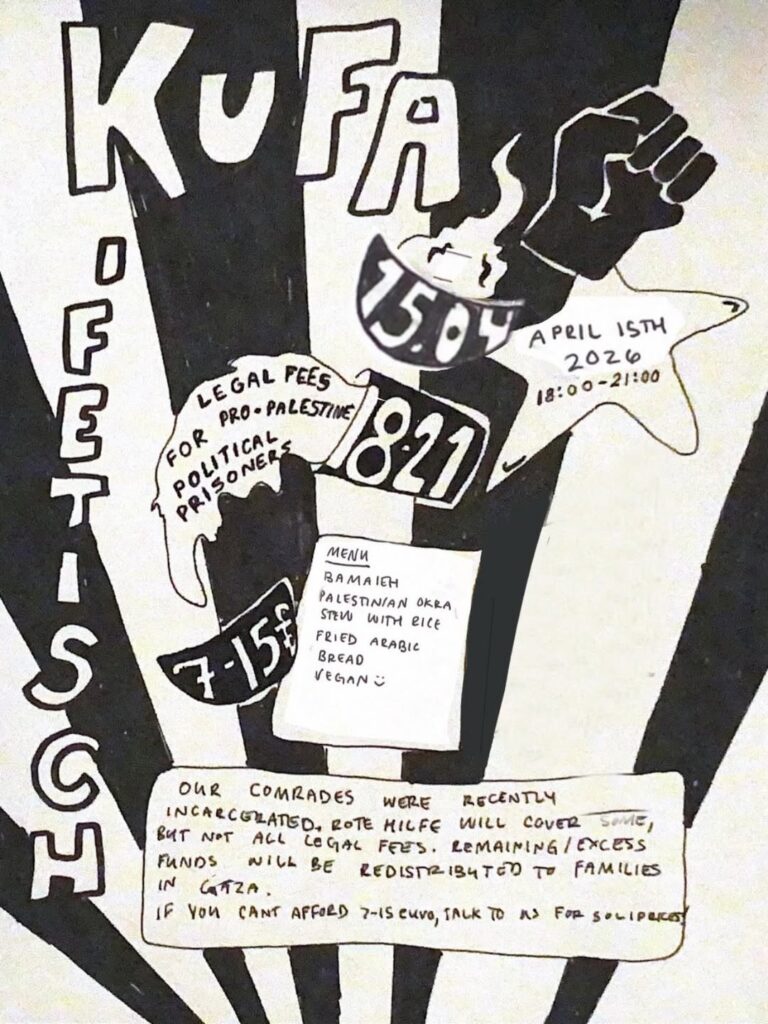 KUFA
'FETISCH
15.04
APRIL 15TH
2026
18:00-21:00
LEGAL FEES
FOR PRO-PALESTINE
POLITICAL
PRISONERS
18-21
MENU
BAMAIEH
PALESTINIAN OKRA
STEW WITH RICE
FRIED ARABIC
BREAD
VEGAN ☺
7-15€
OUR COMRADES WERE RECENTLY
INCARCERATED. ROTE HILFE WILL COVER SOME,
BUT NOT ALL LEGAL FEES. REMAINING/EXCESS
FUNDS WILL BE REDISTRIBUTED TO FAMILIES
IN GAZA.
IF YOU CANT AFFORD 7-15 euro, TALK TO US FOR SOLIPRICES!